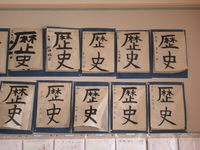 歴史
歴史
歴史
歴史
歴史
歴史
歴史
歴史
歴史
歴史